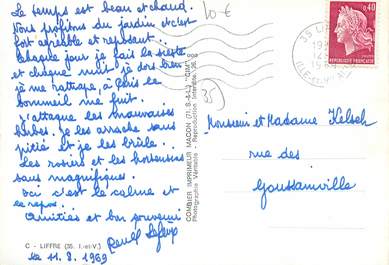 Le temps est beau et chaud.
Nous profitons du jardin et c'est
fort agréable et reposant.
Chaque jour je fais la sieste
et chaque nuit je dors bien
je me rattrape, à Paris le
sommeil me fuit.
J'attaque les mauvaises
herbes. Je les arrache sans
pitié et je les brûle.
Les rosiers et les hortensias
sont magnifiques.
Ici c'est le calme et
le repos.
Amitiés et bon souvenir
C - LIFFRE (35. I.-et-V.)
Le 11.8.1969
10 €
35
COMBIER IMPRIMEUR MACON (71. S.-&-L.) "CIM"
Photographie Véritable - Reproduction Interdite
0,40
REPUBLIQUE FRANÇAISE
35 LIFFRE
ILLE-ET-VILAINE
Monsieur et Madame Kelsch
rue des
Goussainville